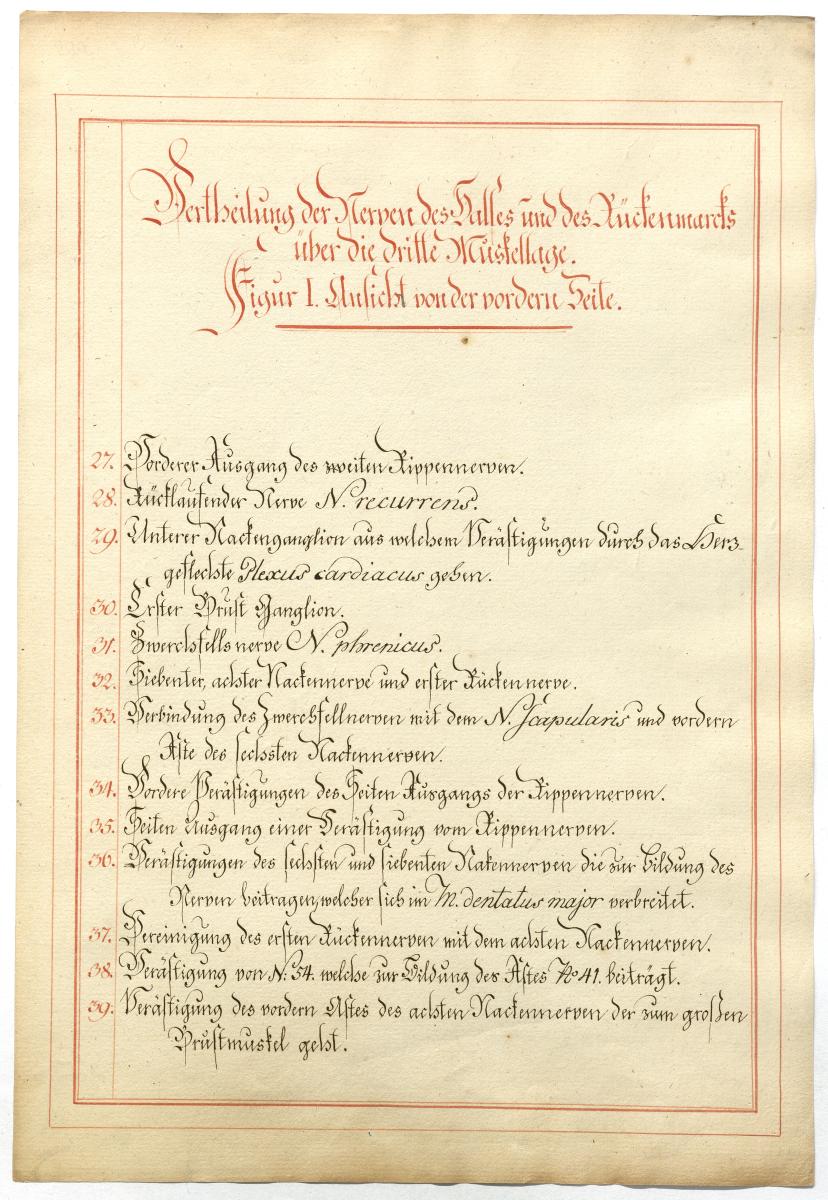 Vertheilung der Nerven des Halses und des Rückenmarcks
über die dritte Muskellage.
Figur I. Ansicht von der vordern Seite.
27. Vorderer Ausgang des zweiten Rippennerven.
28. Rücklaufender Nerve N. recurrens.
29. Unterer Nackenganglion aus welchem Verästigungen durch das Herz-
geflechte Plexus cardiacus gehen.
30. Erster Brust Ganglion.
31. Zwerchfellsnerve N. phrenicus.
32. Siebenter, achter Nackennerve und erster Rückennerve.
33. Verbindung des Zwerchfellnerven mit dem N. Scapularis und vordern
Aste des sechsten Nackennerven.
34. Vordere Verästigungen des Seiten Ausgangs der Rippennerven.
35. Seiten Ausgang einer Verästigung vom Rippennerven.
36. Verästigungen des sechsten und siebenten Nakennerven die zur Bildung des
Nerven beitragen, welcher sich im M. dentatus major verbreitet.
37. Vereinigung des ersten Rückennerven mit dem achten Nackennerven.
38. Verästigung von N: 54. welche zur Bildung des Astes No 41. beiträgt.
39. Verästigung des vordern Astes des achten Nackennerven der zum großen
Brustmuskel geht.